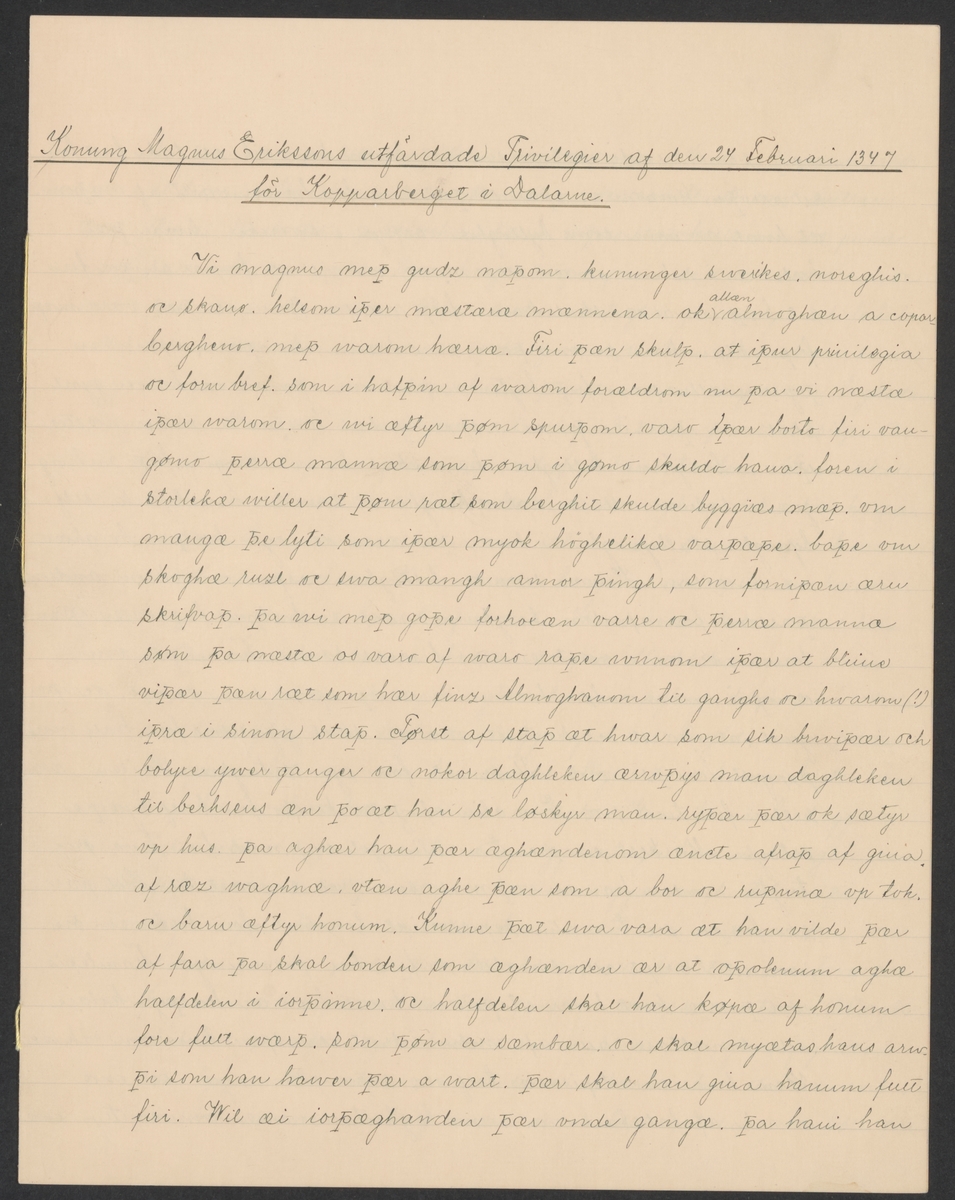 Konung Magnus Erikssons utfärdade Privilegier af den 24 Februari 1347
för Kopparberget i Dalarne.
Vi magnus meþ gudz naþom. kununger swerikes. noreghis.
oc skano. helsom iþer mæstæræ mænnena. ok allæn almoghæn a copar-
bergheno. meþ warom hærræ. Firi þæn skulþ. at iþur priuilegia
oc forn bref. som i hafþin af warom foræloldrom nu þa vi næstæ
iþær warom. oc wi æftyr þøm spurþom. varo iþær borto firi van-
gømo þerræ mannæ som þøm i gømo skuldo hawa. foren i
storlekæ willer at þøm ræt som berghit skulde byggiæs mæþ. vm
mangæ þe lyti som iþær myok höghelikæ varþæþe. baþe vm
skoghæ ruzl oc swa mangh annor þingh, som forniþæn æru
skrifvaþ. þa wi meþ goþe forhoxæn varre oc þerræ mannæ
søm þa næstæ os varo af waro raþe wnnom iþær at bliiue
viþær þæn ræt som hær finz Almoghanom til ganghs oc hwarom (!)
iþræ i sinom staþ. Først af staþ æt hwar som sik bwiþær och
bolyce ywer ganger oc nokor daghleken ærwþys man daghleken
til berhsens æn þo æt han se løskyr man. ryþær þær ok sætyr
vp hus. þa aghær han þær æghændenom æncte afraþ af giuia.
af ræz waghnæ. vtæn aghe þæn som a bor oc ruþunæ vp tok.
oc barn æftyr honum. Kunne þæt swa vara æt han vilde þær
af fara þa skal bonden som æghænden ær at oþolenum aghæ
halfdelen i iorþinne. oc halfdelen skal han køpæ af honum
fore fult wærþ. som þøm a sæmbær. oc skal myætas hans arw-
þi som han hawer þær a wart. þær skal han giua hanum fult
firi. Wil æi iorþæghanden þær vnde gangæ. þa haui han